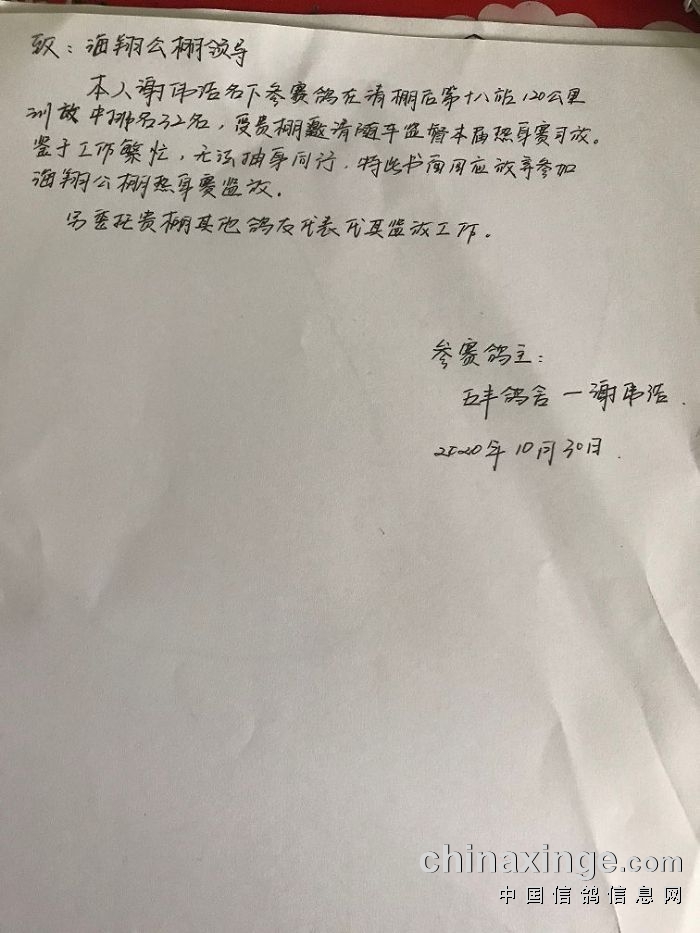 致：海翔公棚领导
本人谢伟浩名下参赛鸽在请棚后第十八站120公里
训放中排名32名，受贵棚邀请随车监督本届热身赛司放。
鉴于工作繁忙，无法抽身同行，特此书面回应放弃参加
海翔公棚热身赛监放．
另委托贵棚其他鸽友代表代其监放工作。
参赛鸽主：
五丰鸽舍—谢伟浩．
2020年10月30日．
chinaxinge.com
中国信鸽信息网